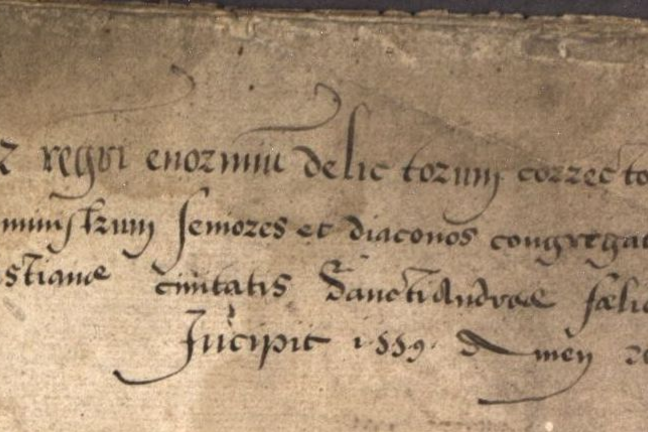 enormiū delictorum correcto
ministrum seniores et diaconos congregat
stiane ciuitatis Sancti Andreæ fœlic
Incipit 1559. Amen